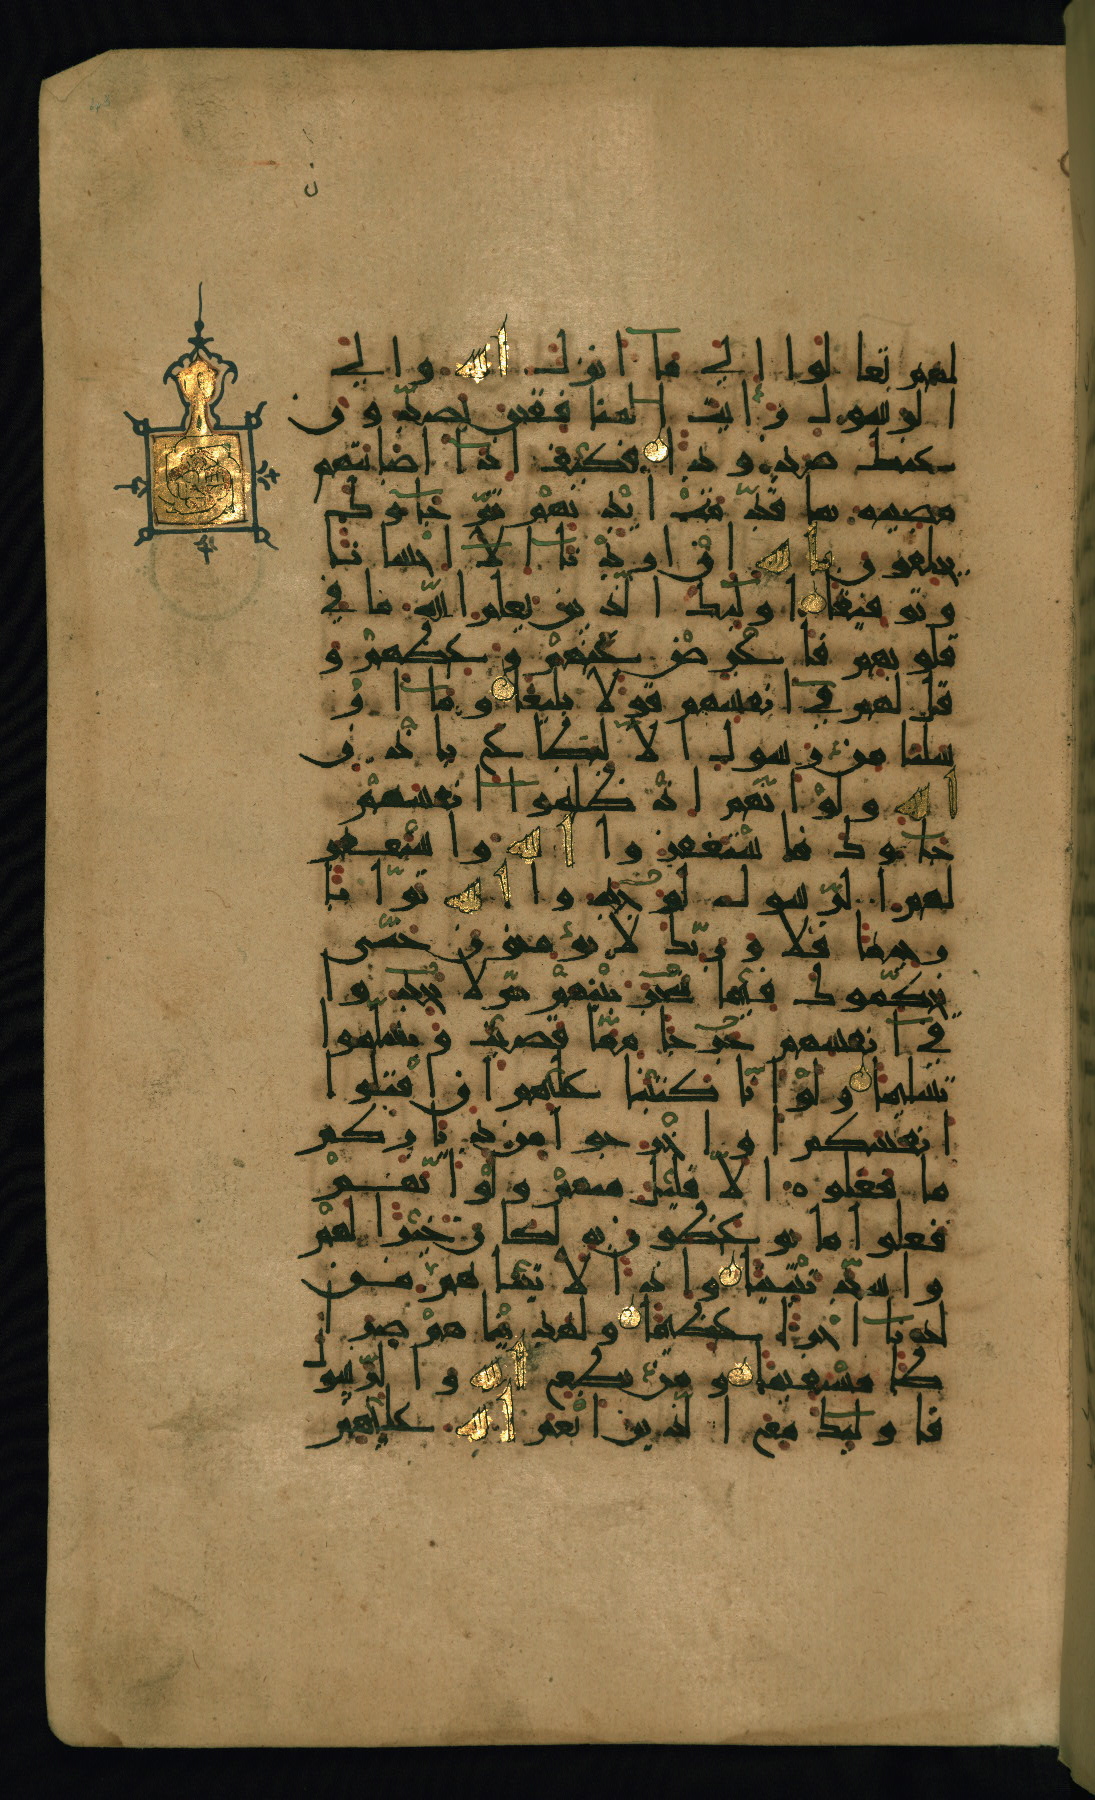 لهم تعالوا الى ما انزل الله والى
الرسول رايت المنافقين يصدون
عنك صدودا فكيف اذا اصابتهم
مصيبه بما قدمت ايديهم ثم جاوك
يحلفون بالله ان اردنا الا احسانا
وتوفيقا اوليك الذين يعلم الله ما في
قلوبهم فاعرض عنهم وعظهم و
قل لهم في انفسهم قولا بليغا وما ار
سلنا من رسول الا ليطاع باذن
الله ولو انهم اذ ظلموا انفسهم
جاوك فاستغفروا الله واستغفر
لهم الرسول لوجدوا الله توابا
رحيما فلا وربك لا يومنون حتى
يحكموك فيما شجر بينهم ثم لا يجدوا
في انفسهم حرجا مما قضيت ويسلموا
تسليما ولو انا كتبنا عليهم ان اقتلوا
انفسكم او اخرجوا من دياركم
ما فعلوه الا قليل منهم ولو انهم
فعلوا ما يوعظون به لكان خيرا لهم
واشد تثبيتا واذا لاتيناهم من
لدنا اجرا عظيما ولهديناهم صرا
طا مستقيما ومن يطع الله والرسول
فاوليك مع الذين انعم الله عليهم